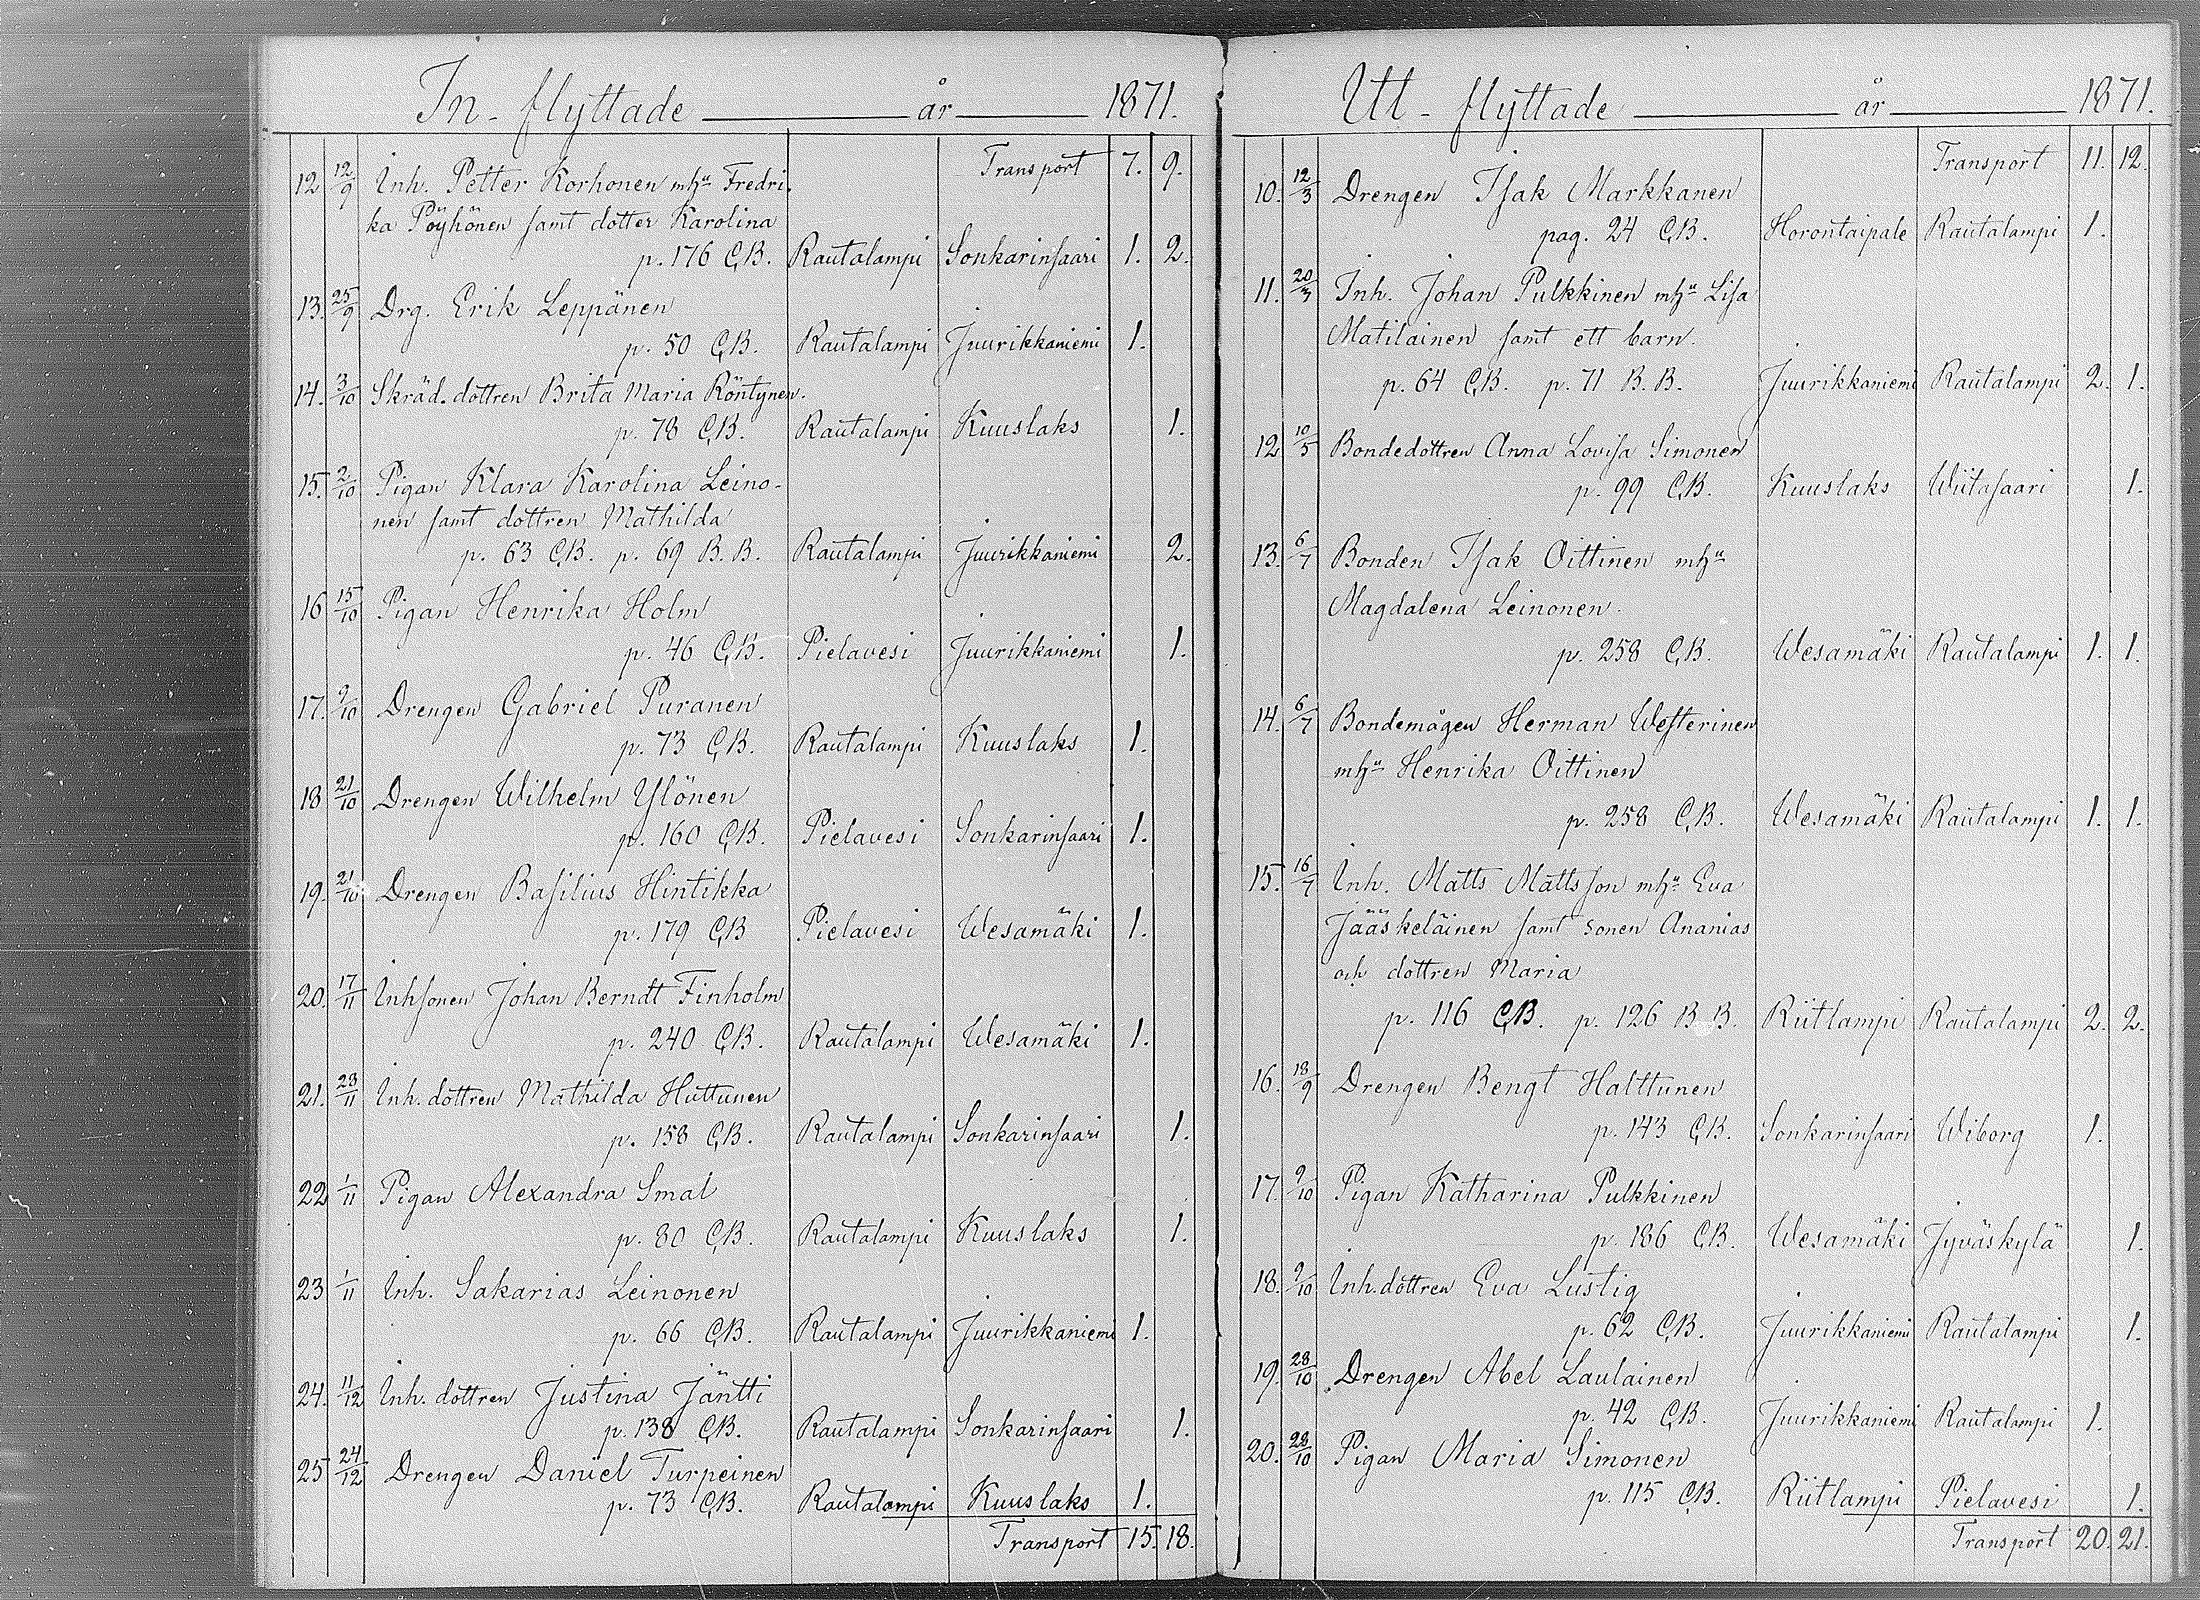 In-flyttade år 1871.
Transport 7. 9.
12 12/9 Inh. Petter Korhonen mhu Fredri-
ka Pöyhönen samt dotter Karolina
p. 176 C,B. Rautalampi Sonkarinsaari 1. 2.
13. 25/9 Drg. Erik Leppänen
p. 50 C,B. Rautalampi Juurikkaniemi 1.
14. 3/10 Skräd. dottren Brita Maria Röntynen.
p. 78 C,B. Rautalampi Kuuslaks 1.
15. 2/10 Pigan Klara Karolina Leino-
nen samt dottren Mathilda
p. 63 C,B. p. 69 B. B. Rautalampi Juurikkaniemi 2.
16 15/10 Pigan Henrika Holm
p. 46 C,B. Pielavesi Juurikkaniemi 1.
17. 9/10 Drengen Gabriel Puranen
p. 73 C,B. Rautalampi Kuuslaks 1.
18 21/10 Drengen Wilhelm Ylönen
p. 160 C,B. Pielavesi Sonkarinsaari 1.
19. 21/10 Drengen Basilius Hintikka
p. 179 C,B Pielavesi Wesamäki 1.
20. 17/11 Inhsonen Johan Berndt Finholm
p. 240 C,B. Rautalampi Wesamäki 1.
21. 28/11 Inh. dottren Mathilda Huttunen
p. 158 C,B. Rautalampi Sonkarinsaari 1.
22 1/11 Pigan Alexandra Smal
p. 80 C,B. Rautalampi Kuuslaks 1.
23 1/11 Inh. Sakarias Leinonen
p. 66 C,B. Rautalampi Juurikkaniemi 1.
24. 11/12 Inh. dottren Justina Jäntti
p. 138 C,B. Rautalampi Sonkarinsaari 1.
25 24/12 Drengen Daniel Turpeinen
p. 73 C,B. Rautalampi Kuuslaks 1.
Transport 15. 18.
Utt-flyttade år 1871.
Transport 11. 12.
10. 12/3 Drengen Isak Markkanen
pag. 24 C,B. Horontaipale Rautalampi 1.
11. 20/3 Inh. Johan Pulkkinen mhu Lisa
Matilainen samt ett barn.
p. 64 C,B. p. 71 B. B. Juurikkaniemi Rautalampi 2. 1.
12 10/5 Bondedottren Anna Lovisa Simonen
p. 99 C,B. Kuuslaks Wiitasaari 1.
13. 6/7 Bonden Isak Oittinen mhu
Magdalena Leinonen.
p. 258 C,B. Wesamäki Rautalampi 1. 1.
14. 6/7 Bondemågen Herman Westerinen
mhu Henrika Oittinen
p. 258 C,B. Wesamäki Rautalampi 1. 1.
15. 16/7 Inh. Matts Mattsson mhu Eva
Jääskeläinen samt sonen Ananias
och dottren Maria
p. 116 C,B. p. 126 B B. Riitlampi Rautalampi 2. 2.
16. 18/9 Drengen Bengt Halttunen
p. 143 C,B. Sonkarinsaari Wiborg 1.
17. 9/10 Pigan Katharina Pulkkinen
p. 186 C,B. Wesamäki Jyväskylä 1.
18. 9/10 Inh. dottren Eva Lustig
p. 62 C,B. Juurikkaniemi Rautalampi 1.
19. 28/10 Drengen Abel Laulainen
p. 42 C,B. Juurikkaniemi Rautalampi 1.
20. 28/10 Pigan Maria Simonen
p. 115 C,B. Riitlampi Pielavesi 1.
Transport 20. 21.